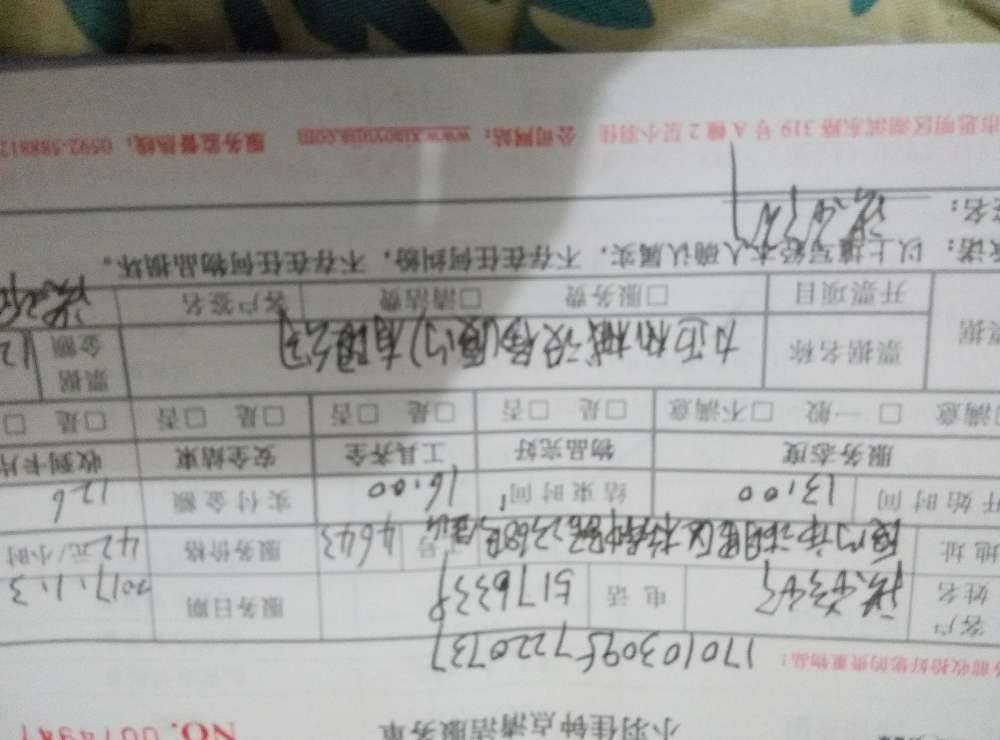 小羽佳钟点清洁服务单 NO. 0014941
前收拾好您的贵重物品： 1701030957220737
客户姓名 电话 5176338 服务日期 2017.1.3
地址 工号 4643 服务价格 42元/小时
开始时间 13:00 结束时间 16:00 实付金额 126
服务态度 物品完好 工具齐全 安全结束 收到卡片
满意 □一般 □不满意 □是 □否 □是 □否 □是 □否 □是 □
票据 票据名称 力正机械设备(厦门)有限公司 票据金额
开票项目 □服务费 □清洁费 客户签名
承诺：以上填写经本人确认属实，不存在任何纠纷，不存在任何物品损坏。
签名：
市思明区湖滨东路 319 号 A 幢 2 层小羽佳 公司网站：www.xiaoyujia.com 服务监督热线：0592-588812